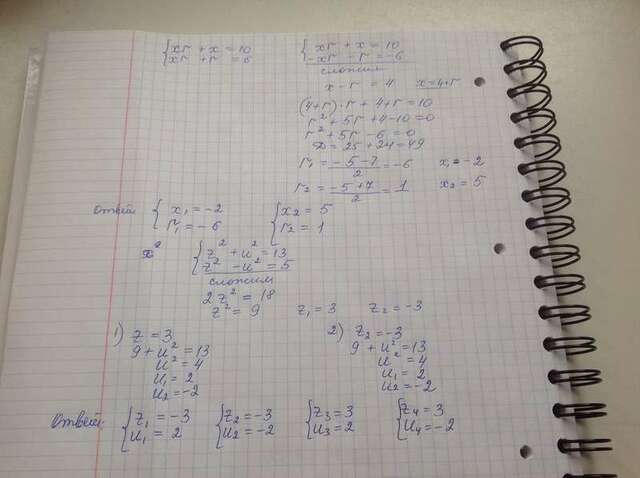 {xr + x = 10
{xr + r = 6
{xr + x = 10
{-xr - r = -6
сложим
x - r = 4 x = 4+r
(4+r)·r + 4+r = 10
r² + 5r + 4-10 = 0
r² + 5r - 6 = 0
D = 25 + 24 = 49
r₁ = (-5-7)/2 = -6 x₁ = -2
r₂ = (-5+7)/2 = 1 x₂ = 5
ответ {x₁ = -2 {x₂ = 5
{r₁ = -6 {r₂ = 1
{z² + u² = 13
{z² - u² = 5
сложим
2z² = 18
z² = 9 z₁ = 3 z₂ = -3
1) z = 3
9 + u² = 13
u² = 4
u₁ = 2
u₂ = -2
2) z₂ = -3
9 + u² = 13
u² = 4
u₁ = 2
u₂ = -2
Ответ: {z₁ = -3 {z₂ = -3 {z₃ = 3 {z₄ = 3
{u₁ = 2 {u₂ = -2 {u₃ = 2 {u₄ = -2